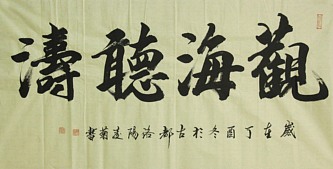 觀海聽濤
歲在丁酉冬於古都洛陽凌菊書